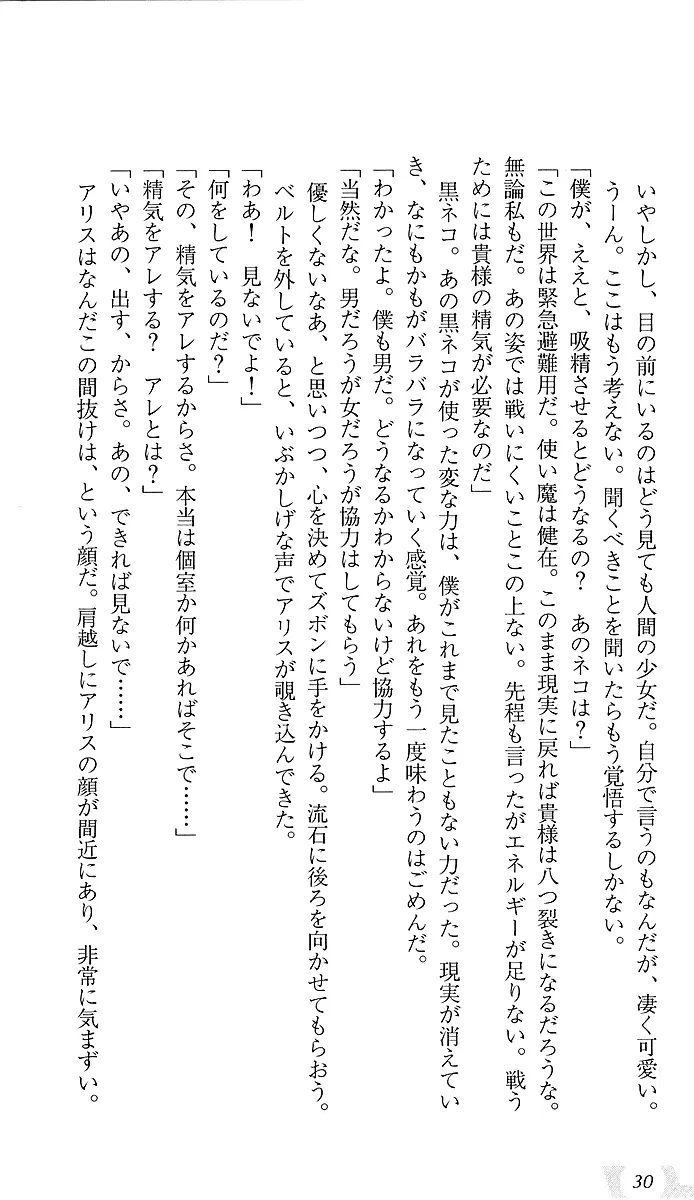 いやしかし、目の前にいるのはどう見ても人間の少女だ。自分で言うのもなんだが、凄く可愛い。
うーん。ここはもう考えない。聞くべきことを聞いたらもう覚悟するしかない。
「僕が、ええと、吸精させるとどうなるの？　あのネコは？」
「この世界は緊急避難用だ。使い魔は健在。このまま現実に戻れば貴様は八つ裂きになるだろうな。
無論私もだ。あの姿では戦いにくいことこの上ない。先程も言ったがエネルギーが足りない。戦う
ためには貴様の精気が必要なのだ」
黒ネコ。あの黒ネコが使った変な力は、僕がこれまで見たこともない力だった。現実が消えてい
き、なにもかもがバラバラになっていく感覚。あれをもう一度味わうのはごめんだ。
「わかったよ。僕も男だ。どうなるかわからないけど協力するよ」
「当然だな。男だろうが女だろうが協力はしてもらう」
優しくないなあ、と思いつつ、心を決めてズボンに手をかける。流石に後ろを向かせてもらおう。
ベルトを外していると、いぶかしげな声でアリスが覗き込んできた。
「わあ！　見ないでよ！」
「何をしているのだ？」
「その、精気をアレするからさ。本当は個室か何かあればそこで……」
「精気をアレする？　アレとは？」
「いやあの、出す、からさ。あの、できれば見ないで……」
アリスはなんだこの間抜けは、という顔だ。肩越しにアリスの顔が間近にあり、非常に気まずい。
30